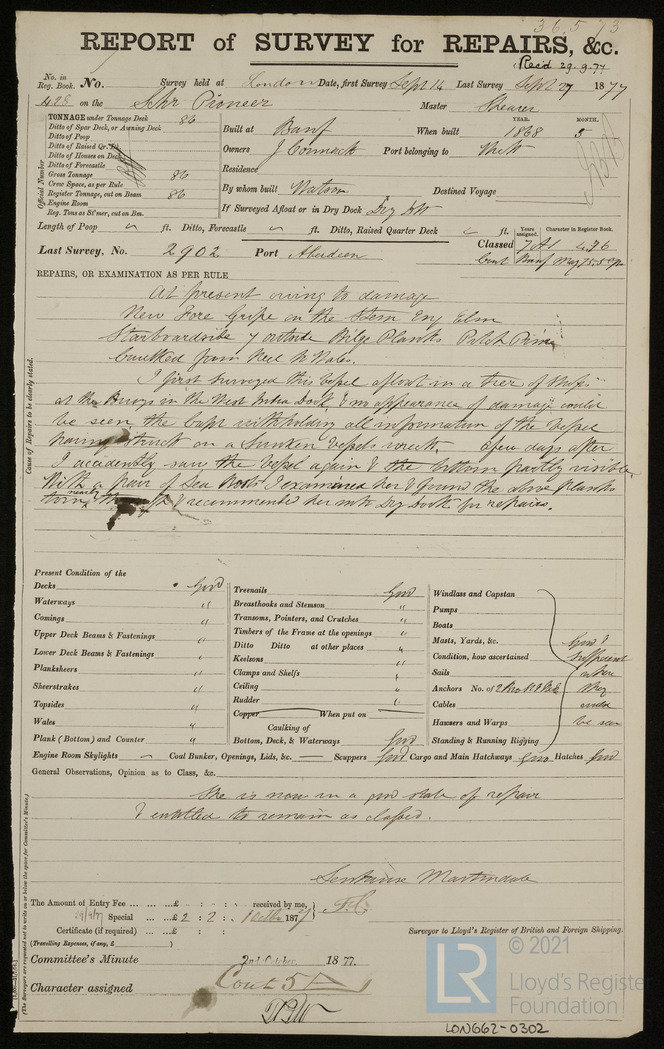 36573
REPORT of SURVEY for REPAIRS, &c.
Rec'd 29.9.77
No. in Reg. Book. No. Survey held at London Date, first Survey Sept 14 Last Survey Sept 27 1877
428 on the Schr Pioneer Master Shearer
TONNAGE under Tonnage Deck 86
Ditto of Spar Deck, or Awning Deck
Ditto of Poop
Ditto of Raised Qr. Dk.
Ditto of Houses on Deck
Ditto of Forecastle
Gross Tonnage 86
Crew Space, as per Rule
Register Tonnage, cut on Beam 86
Engine Room
Reg. Tons as St'mer, cut on Bm.
Official Number
YEAR. MONTH.
Built at Banf When built 1868 5
Owners J Cormack Port belonging to
Residence
By whom built Watson Destined Voyage
If Surveyed Afloat or in Dry Dock Dry Dk
Length of Poop ft. Ditto, Forecastle ft. Ditto, Raised Quarter Deck ft.
Years assigned. Character in Register Book.
Classed 7 A1 4.76
Last Survey, No. 2902 Port Aberdeen
Cont Banf May 75, 5
REPAIRS, OR EXAMINATION AS PER RULE
At present owing to damage
New Fore Gripe on the Stem Eng Elm
Starboardside 7 outside Bilge Planks Pitch Pine
Caulked from Keel to Wales.
I first surveyed this vessel afloat in a tier of ships
at the Buoys in the West India Dock, & no appearance of damage could
be seen the Capt withholding all information of the vessel
having struck on a sunken vessels wreck. A few days after
I accidently saw the vessel again & the bottom partly visible
With a pair of Sea Boots I examined her & found the above planks
torn nearly & recommended her into Dry Dock for repairs.
Cause of Repairs to be clearly stated.
Present Condition of the
Decks Good
Waterways "
Comings "
Upper Deck Beams & Fastenings "
Lower Deck Beams & Fastenings "
Planksheers "
Sheerstrakes "
Topsides "
Wales "
Plank (Bottom) and Counter "
Treenails Good
Breasthooks and Stemson "
Transoms, Pointers, and Crutches "
Timbers of the Frame at the openings "
Ditto Ditto at other places "
Keelsons "
Clamps and Shelfs "
Ceiling "
Rudder "
Copper When put on
Caulking of
Bottom, Deck, & Waterways Good
Windlass and Capstan
Pumps
Boats
Masts, Yards, &c. Good &
Condition, how ascertained sufficient
Sails where
Anchors No. of they
Cables could
Hawsers and Warps be seen
Standing & Running Rigging
Engine Room Skylights Coal Bunker, Openings, Lids, &c. Scuppers Good Cargo and Main Hatchways Good Hatches Good
General Observations, Opinion as to Class, &c.
She is now in a good state of repair
& entitled to remain as classed.
Martindale
The Amount of Entry Fee £ : : received by me,
Special £ 2 : 2 : 1 Octbr 1877
Certificate (if required) £ : :
(Travelling Expenses, if any, £ )
Surveyor to Lloyd's Register of British and Foreign Shipping.
Committee's Minute 2nd October 1877.
Character assigned Cont 5 A
(The Surveyors are requested not to write on or below the space for Committee's Minute.)
LR
© 2021
Lloyd's Register
Foundation
LON662-0302